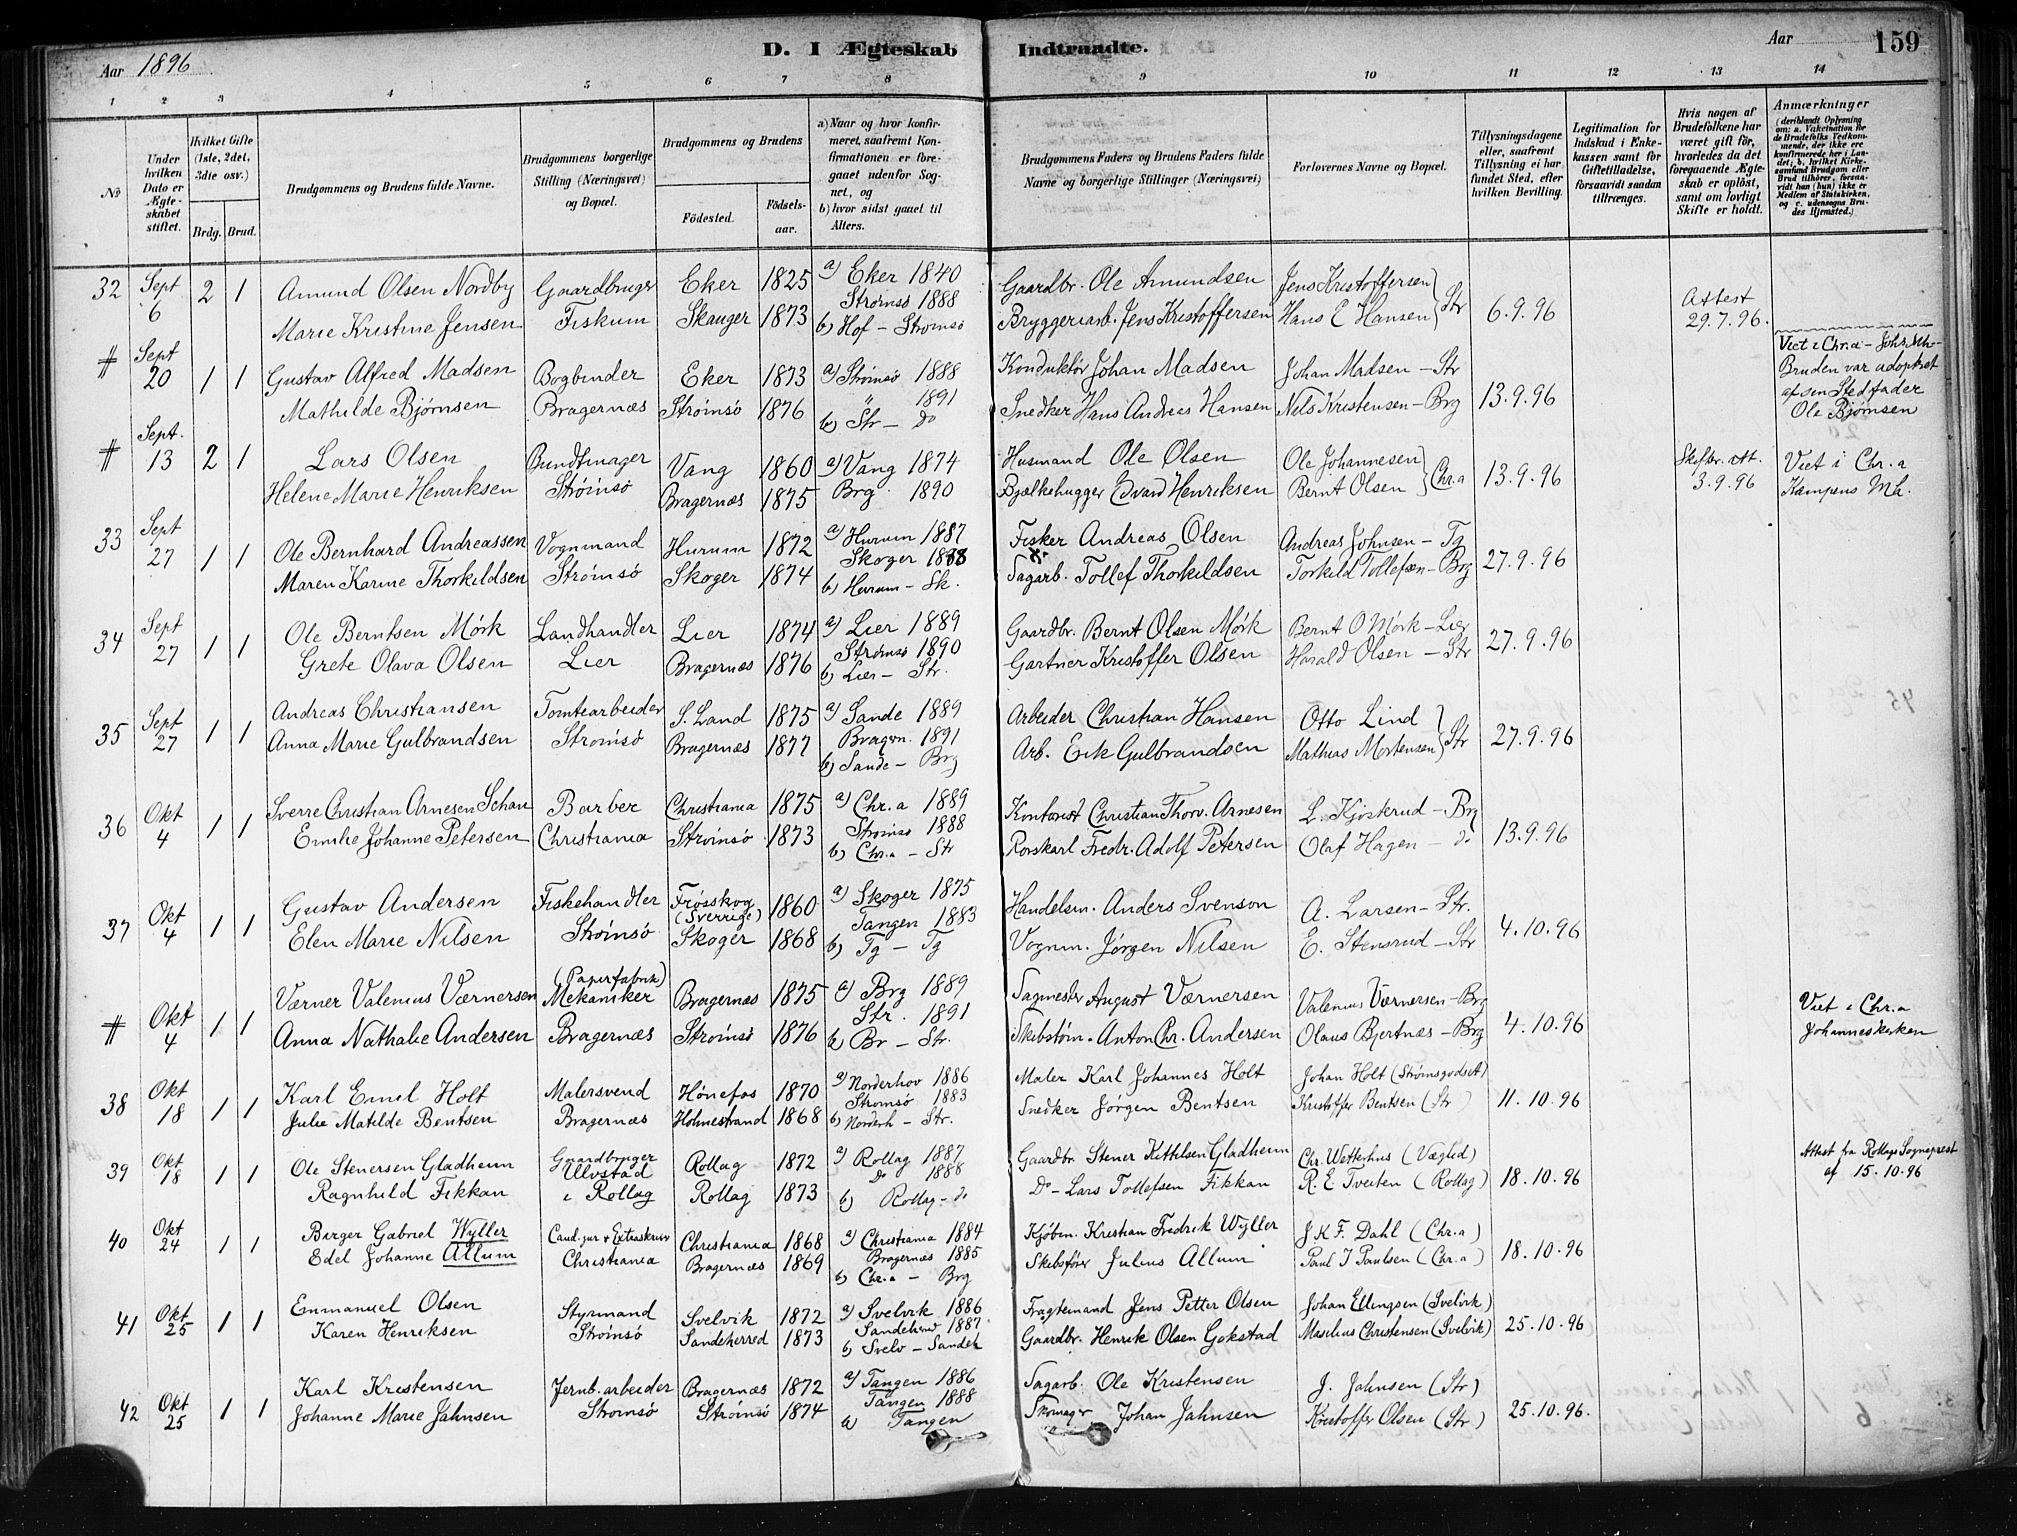 Aar 1896
D. I Ægteskab Indtraadte.
Aar
159
1 2 3 4 5 6 7 8 9 10 11 12 13 14
No
Under hvilken Dato er Ægteskabet stiftet.
Hvilket Gifte (1ste, 2det, 3die osv.)
Brdg. Brud.
Brudgommens og Brudens fulde Navne.
Brudgommens borgerlige Stilling (Næringsvei) og Bopæl.
Brudgommens og Brudens
Födested.
Födselsaar.
a) Naar og hvor konfirmeret, saafremt Konfirmationen er foregaaet udenfor Sognet, og
b) hvor sidst gaaet til Alters.
Brudgommens Faders og Brudens Faders fulde Navne og borgerlige Stillinger (Næringsvei)
Forlovernes Navne og Bopæl.
Tillysningsdagene eller, saafremt Tillysning ei har fundet Sted, efter hvilken Bevilling.
Legitimation for Indskud i Enkekassen samt for Giftetilladelse, forsaavidt saadan tiltrænges.
Hvis nogen af Brudefolkene har været gift før, hvorledes da det foregaaende Ægteskab er opløst, samt om lovligt Skifte er holdt.
Anmærkninger (deriblandt Oplysning om: a. Vakcination for de Brudefolks Vedkommende, der ikke ere konfirmerede her i Landet; b. hvilket Kirkesamfund Brudgom eller Brud tilhører, forsaavidt han (hun) ikke er Medlem af Statskirken, og c. udensogns Brudes Hjemsted.)
32 Sept 6 2 1 Amund Olsen Nordby Gaardbruger Eker 1825 a) Eker 1840 Gaardbr. Ole Amundsen Jens Kristoffersen
Marie Kristine Jensen Fiskum Skauger 1873 Strømsø 1888 b) Hof - Strømsø Bryggeriarb. Jens Kristoffersen Hans E Hansen } Str 6.9.96 Attest 29.7.96.
# Sept 20 1 1 Gustav Alfred Madsen Bogbinder Eker 1873 a) Strømsø 1888 Konduktør Johan Madsen Johan Madsen - Str
Mathilde Bjørnsen Bragernæs Strømsø 1876 " 1891 b) Str - Do Snedker Hans Andreas Hansen Nels Kristensen - Brg 13.9.96 Viet i Chr.a - Bruden var adoptret af sen Stedfader Ole Bjørnsen
# Sept. 13 2 1 Lars Olsen Bundtmager Vang 1860 a) Vang 1874 Husmand Ole Olsen Ole Johannesen
Helene Marie Henriksen Strømsø Bragernæs 1875 Brg. 1890 Bjælkehugger Edvard Henriksen Bernt Olsen } Chr.a 13.9.96 Skiftbr. att. 3.9.96 Viet i Chr.a Kampens Mh.
33 Sept 27 1 1 Ole Bernhard Andreassen Vognmand Hurum 1872 a) Hurum 1887 Fisker Andreas Olsen Andreas Johnsen - Tg
Maren Karine Thorkildsen Strømsø Skoger 1874 Skoger 1888 b) Hurum - Sk. Sagarb. Tollef Thorkildsen Torkild Tollefsen - Brg 27.9.96
34 Sept 27 1 1 Ole Berntsen Mørk Landhandler Lier 1874 a) Lier 1889 Gaardbr. Bernt Olsen Mørk Bernt O Mørk - Lier
Grete Olava Olsen Lier Bragernæs 1876 Strømsø 1890 b) Lier - Str. Gartner Kristoffer Olsen Harald Olsen - Str 27.9.96
35 Sept 27 1 1 Andreas Christiansen Tomtearbeider S. Land 1875 a) Sande 1889 Arbeider Christian Hansen Otto Lind
Anna Marie Gulbrandsen Strømsø Bragernæs 1877 Bragern. 1891 b) Sande - Brg Arb. Erik Gulbrandsen Mathias Mortensen } Str 27.9.96
36 Okt 4 1 1 Sverre Christian Arnesen Schau Barber Christiania 1875 a) Chr.a 1889 Kontorist Christian Thorv. Arnesen L. Kjøsterud - Brg
Emilie Johanne Petersen Christiania Strømsø 1873 Strømsø 1888 b) Chr.a - Str Rorskarl Fredr. Adolf Petersen Olaf Hagen - do 13.9.96
37 Okt 4 1 1 Gustav Andersen Fiskehandler Frøsskog (Sverrige) 1860 a) Skoger 1875 Handelsm. Anders Svenson A. Larsen - Str.
Elen Marie Nilsen Strømsø Skoger 1868 Tangen 1883 b) Tg - Tg Vognm. Jørgen Nilsen E. Stensrud - Str 4.10.96
# Okt 4 1 1 Værner Valenius Værnersen (Papirfabrik) Mekaniker Bragernæs 1875 a) Brg 1889 Sagmester August Værnersen Valenius Værnersen - Brg
Anna Nathalie Andersen Bragernæs Strømsø 1876 Str. 1891 b) Br - Str. Skibstøm. Anton Chr. Andersen Olaus Bjertnæs - Brg 4.10.96 Viet i Chr.a Johanneskirken
38 Okt 18 1 1 Karl Emil Holt Malersvend Hønefos 1870 a) Norderhov 1886 Maler Karl Johannes Holt Johan Holt (Strømsgodset)
Julie Matilde Bentsen Bragernæs Holmestrand 1868 Strømsø 1883 b) Norderh - Str. Snedker Jørgen Bentsen Kristoffer Bentsen (Str) 11.10.96
39 Okt 18 1 1 Ole Stenersen Gladheim Gaardbruger Ullvstad Rollag 1872 a) Rollag 1887 Gaardbr Stener Kittilsen Gladheim Chr. Wetterhus (Vægled)
Ragnhild Fikkan i Rollag Rollag 1873 Do 1888 b) Rollag - do Do - Lars Tollefsen Fikkan R. E Tveiten (Rollag) 18.10.96 Attest fra Rollags Sogneprest af 15.10.96
40 Okt 24 1 1 Birger Gabriel Wyller Cand. jur + Extraskriver Christiania 1868 a) Christiania 1884 Kjøbm. Kristian Fredrik Wyller J K F. Dahl (Chr.a)
Edel Johanne Allum Christiania Bragernæs 1869 Bragernæs 1885 b) Chr.a - Brg Skibsfører Julius Allum Paul J Paulsen (Chr.a) 18.10.96
41 Okt 25 1 1 Emmanuel Olsen Styrmand Svelvik 1872 a) Svelvik 1886 Fragtemand Jens Petter Olsen Johan Ellingsen (Svelvik)
Karen Henriksen Strømsø Sandeherred 1873 Sandeherred 1887 b) Svelv - Sandeh Gaardbr. Henrik Olsen Gokstad Maselius Christensen (Svelvik) 25.10.96
42 Okt 25 1 1 Karl Kristensen Jernb. arbeider Bragernæs 1872 a) Tangen 1886 Sagarb. Ole Kristensen J. Jahnsen (Str)
Johanne Marie Jahnsen Strømsø Strømsø 1874 Tangen 1888 b) Tangen Skomager Johan Jahnsen Kristoffer Olsen (Str) 25.10.96.